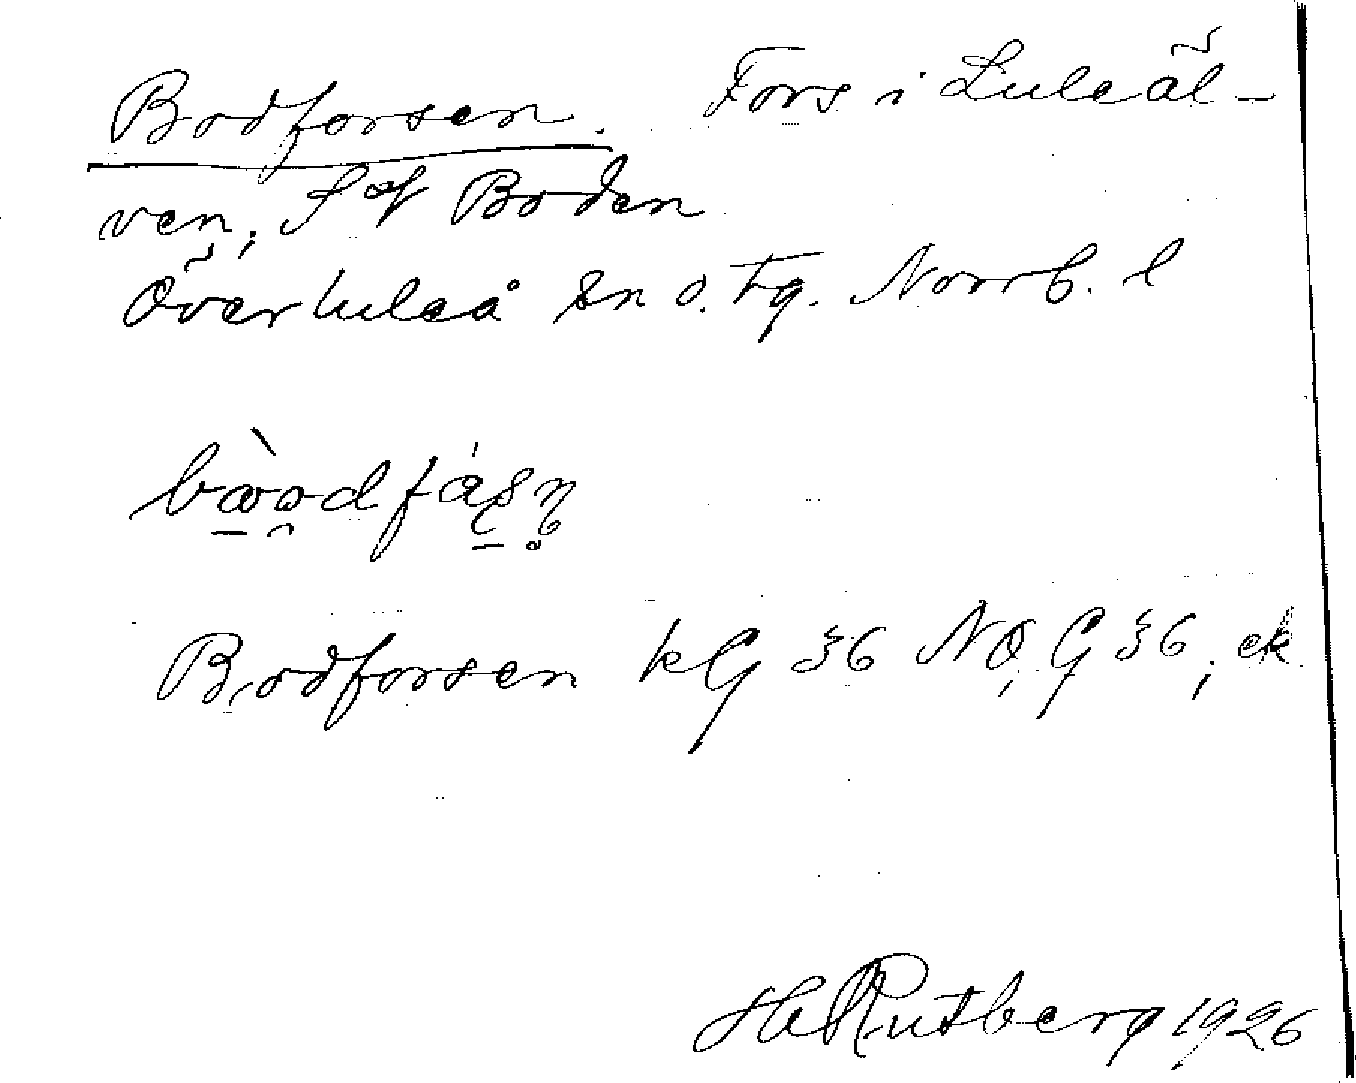 Bodforsen. Fors i Luleäl-
ven, S of Boden
Överluleå sn o. tg. Norrb. l
Bodforsen kG 36 NO, G 36, ek.
H Rutberg 1926